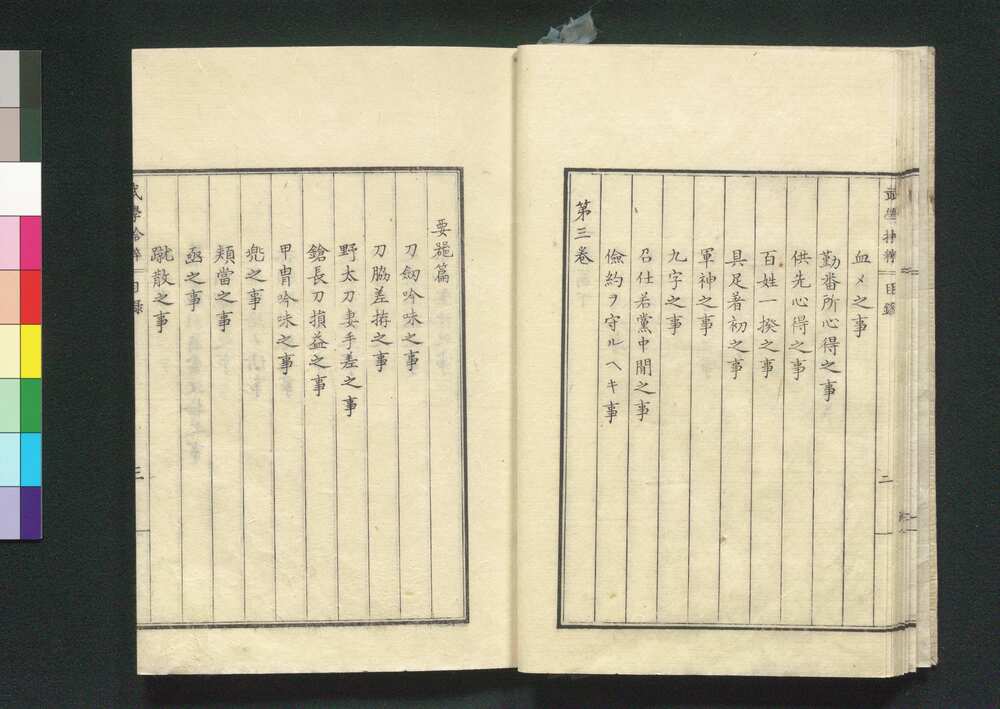 血〆之事
勤番所心得之事
供先心得之事
百姓一揆之事
具足着初之事
軍神之事
九字之事
召仕若黨中間之事
儉約ヲ守ルヘキ事
第三卷
要器篇
刀劔吟味之事
刀脇差拵之事
野太刀妻手差之事
鎗長刀損益之事
甲冑吟味之事
兠之事
頬當之事
之事
蹴散之事
三